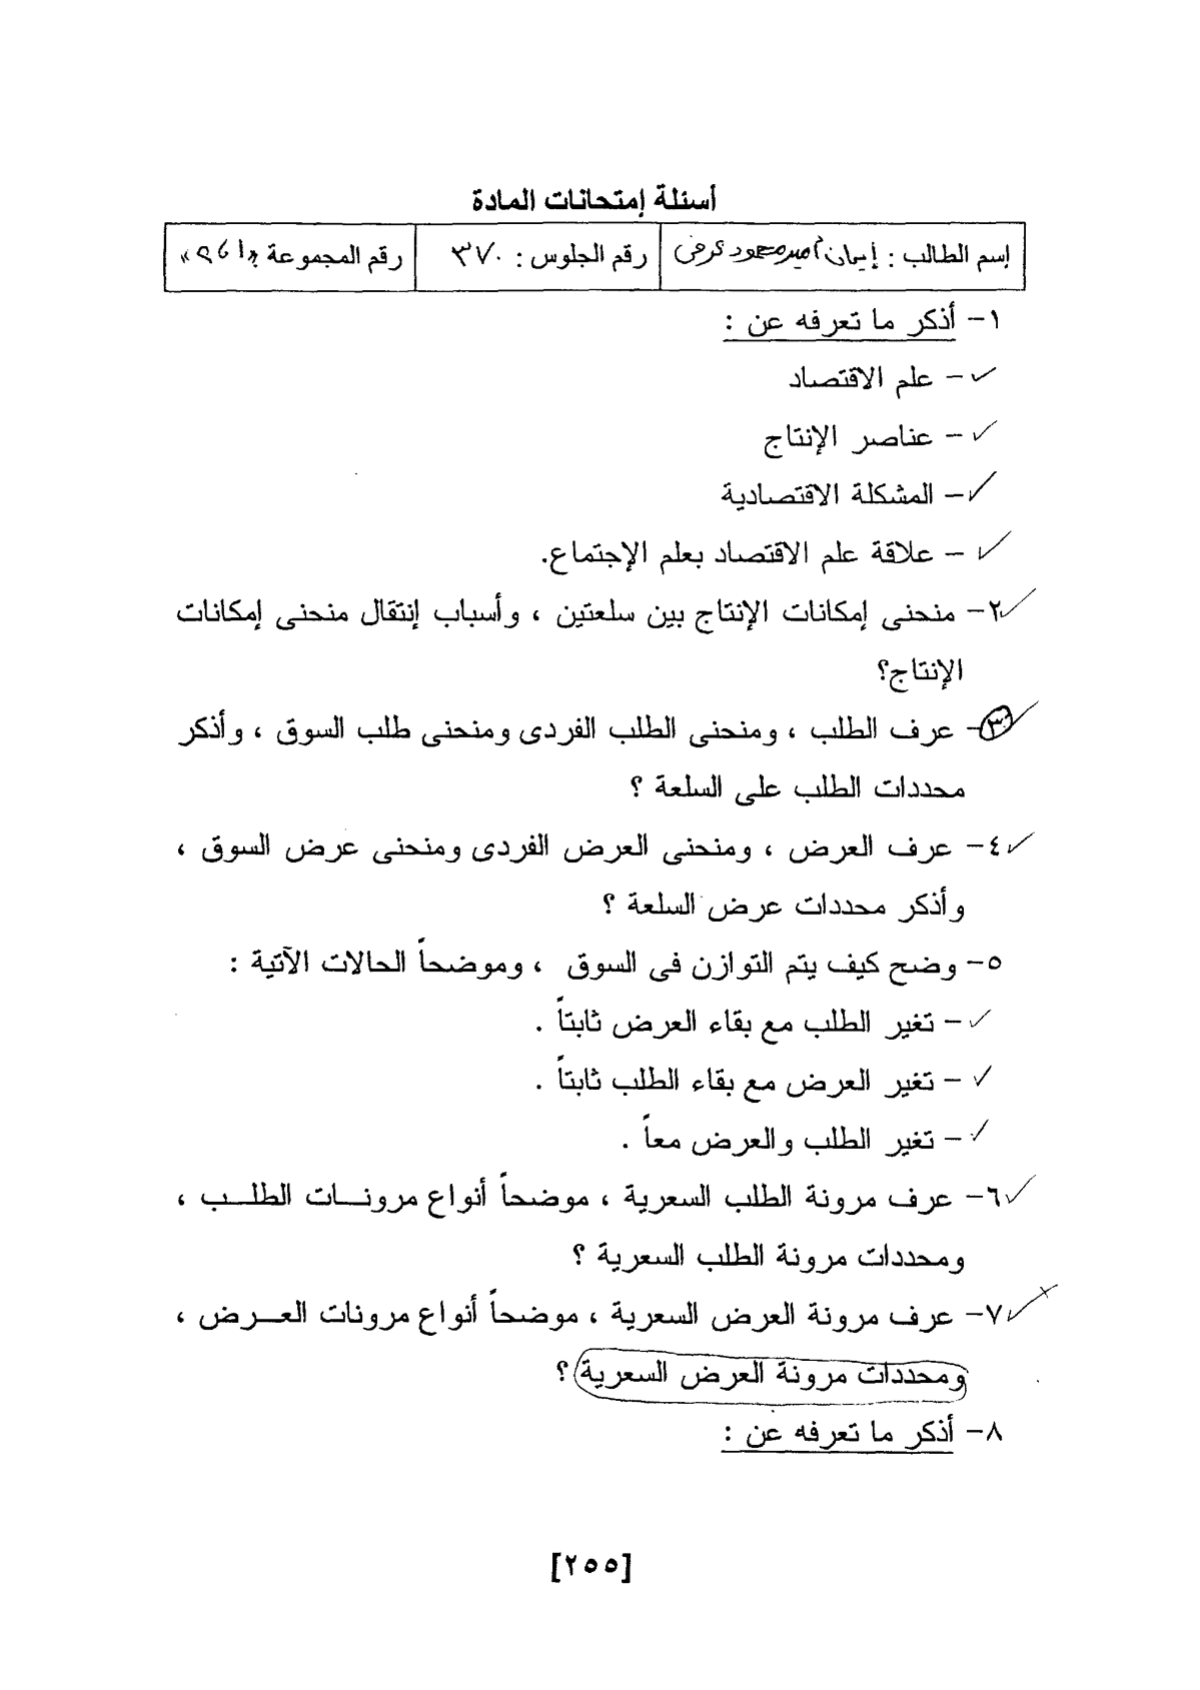 أسئلة إمتحانات المادة
إسم الطالب : إيمان أمير محمود رقم الجلوس : ٣٧٠ رقم المجموعة
١- أذكر ما تعرفه عن :
✓ - علم الاقتصاد
✓ - عناصر الإنتاج
✓ - المشكلة الاقتصادية
✓ - علاقة علم الاقتصاد بعلم الإجتماع.
✓ ٢- منحنى إمكانات الإنتاج بين سلعتين ، وأسباب إنتقال منحنى إمكانات
الإنتاج؟
✓ ٣- عرف الطلب ، ومنحنى الطلب الفردى ومنحنى طلب السوق ، وأذكر
محددات الطلب على السلعة ؟
✓ ٤- عرف العرض ، ومنحنى العرض الفردى ومنحنى عرض السوق ،
وأذكر محددات عرض السلعة ؟
٥- وضح كيف يتم التوازن فى السوق ، وموضحاً الحالات الآتية :
✓ - تغير الطلب مع بقاء العرض ثابتاً .
✓ - تغير العرض مع بقاء الطلب ثابتاً .
✓ - تغير الطلب والعرض معاً .
✓ ٦- عرف مرونة الطلب السعرية ، موضحاً أنواع مرونــات الطلــب ،
ومحددات مرونة الطلب السعرية ؟
✓ ٧- عرف مرونة العرض السعرية ، موضحاً أنواع مرونات العــرض ،
ومحددات مرونة العرض السعرية ؟
٨- أذكر ما تعرفه عن :
[٢٥٥]